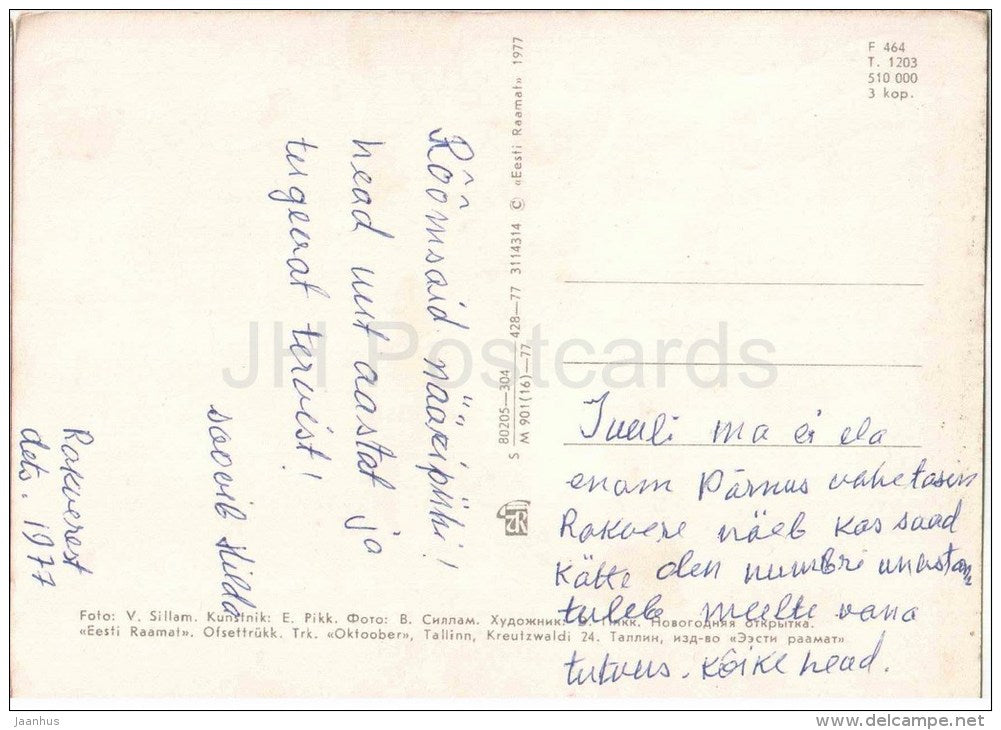 F 464
T. 1203
510 000
3 kop.
Rõõmsaid nääripühi!
head uut aastat ja
tugevat tervist!
soovib Hilda
Rakverest
dets. 1977
S 80205—304 428—77 3114314 © «Eesti Raamat» 1977
M 901(16)—77
Juuli ma ei ela
enam Pärnus vahetasin
Rakvere näeb kas saad
kätte olen numbri unustan
tuleb meelte vana
tutvus. kõike head.
Foto: V. Sillam. Kunstnik: E. Pikk. Фото: В. Силлам. Художник: Пикк. Новогодняя открытка.
«Eesti Raamat». Ofsettrükk. Trk. «Oktoober», Tallinn, Kreutzwaldi 24. Таллин, изд-во «Ээсти раамат»
JH Postcards
jaanhus
www.delcampe.net